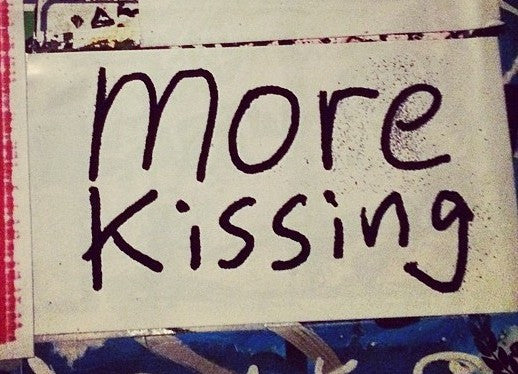 more
kissing